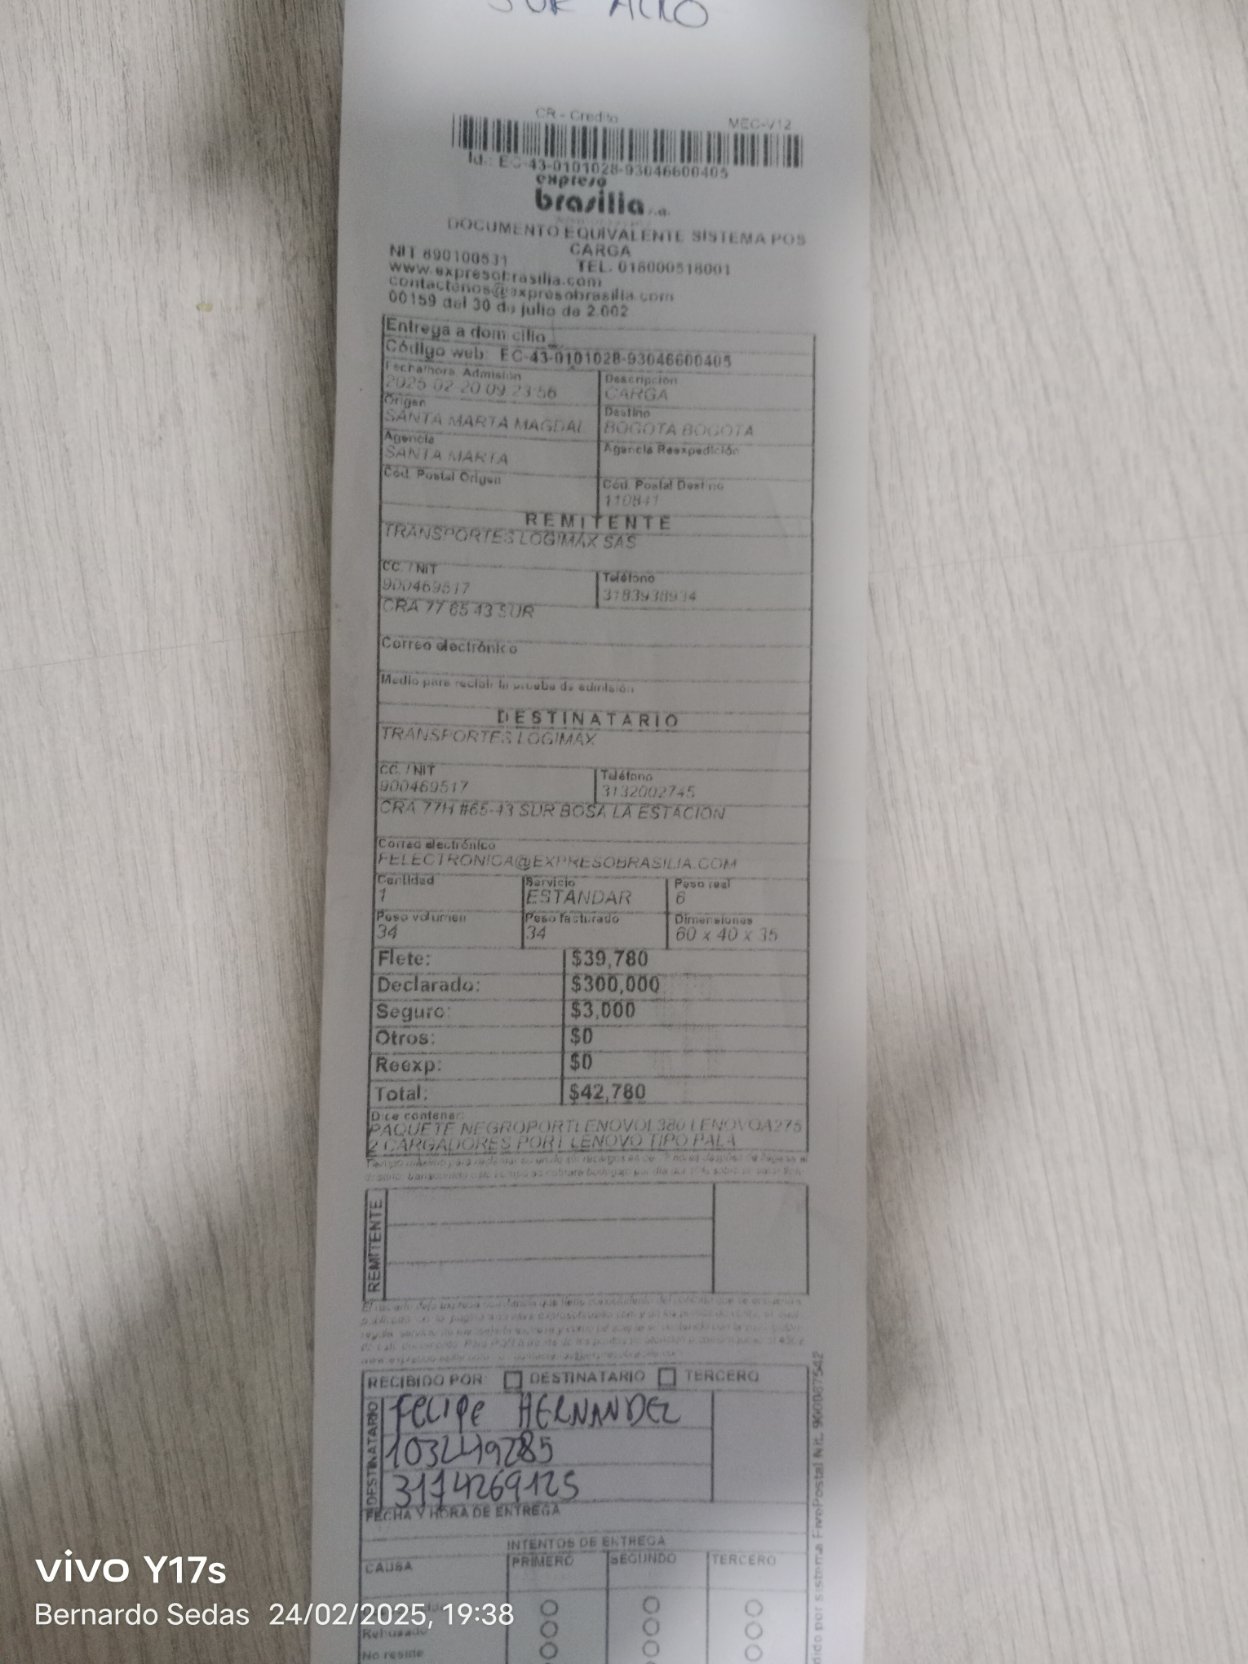 SUR ACRO
CR - Credito MEC-V12
Id.: EC-43-0101028-93046600405
expreso
brasilia s.a.
DOCUMENTO EQUIVALENTE SISTEMA POS
CARGA
NIT 890100531 TEL. 018000518001
www.expresobrasilia.com
contactenos@expresobrasilia.com
00159 del 30 de julio de 2.002
Entrega a domicilio
Código web: EC-43-0101028-93046600405
Fecha/hora Admisión Descripción
2025-02-20 09:23:56 CARGA
Origen Destino
SANTA MARTA MAGDAL BOGOTA BOGOTA
Agencia Agencia Reexpedición
SANTA MARTA
Cód. Postal Origen Cód. Postal Destino
110841
REMITENTE
TRANSPORTES LOGIMAX SAS
CC. / NIT Teléfono
900469517 3183938934
CRA 77 65 43 SUR
Correo electrónico
Medio para recibir la prueba de admisión
DESTINATARIO
TRANSPORTES LOGIMAX
CC. / NIT Teléfono
900469517 3132002745
CRA 77H #65-43 SUR BOSA LA ESTACION
Correo electrónico
FELECTRONICA@EXPRESOBRASILIA.COM
Cantidad Servicio Peso real
1 ESTANDAR 6
Peso volumen Peso facturado Dimensiones
34 34 60 x 40 x 35
Flete: $39,780
Declarado: $300,000
Seguro: $3,000
Otros: $0
Reexp: $0
Total: $42,780
Dice contener:
PAQUETE NEGROPORTLENOVOL380 LENOVOA275
2 CARGADORES PORT LENOVO TIPO PALA
REMITENTE
RECIBIDO POR: DESTINATARIO TERCERO
DESTINATARIO
FELIPE HERNANDEZ
1032449285
3174269125
FECHA Y HORA DE ENTREGA
INTENTOS DE ENTREGA
CAUSA PRIMERO SEGUNDO TERCERO
Rehusado
No reside
vivo Y17s
Bernardo Sedas 24/02/2025, 19:38